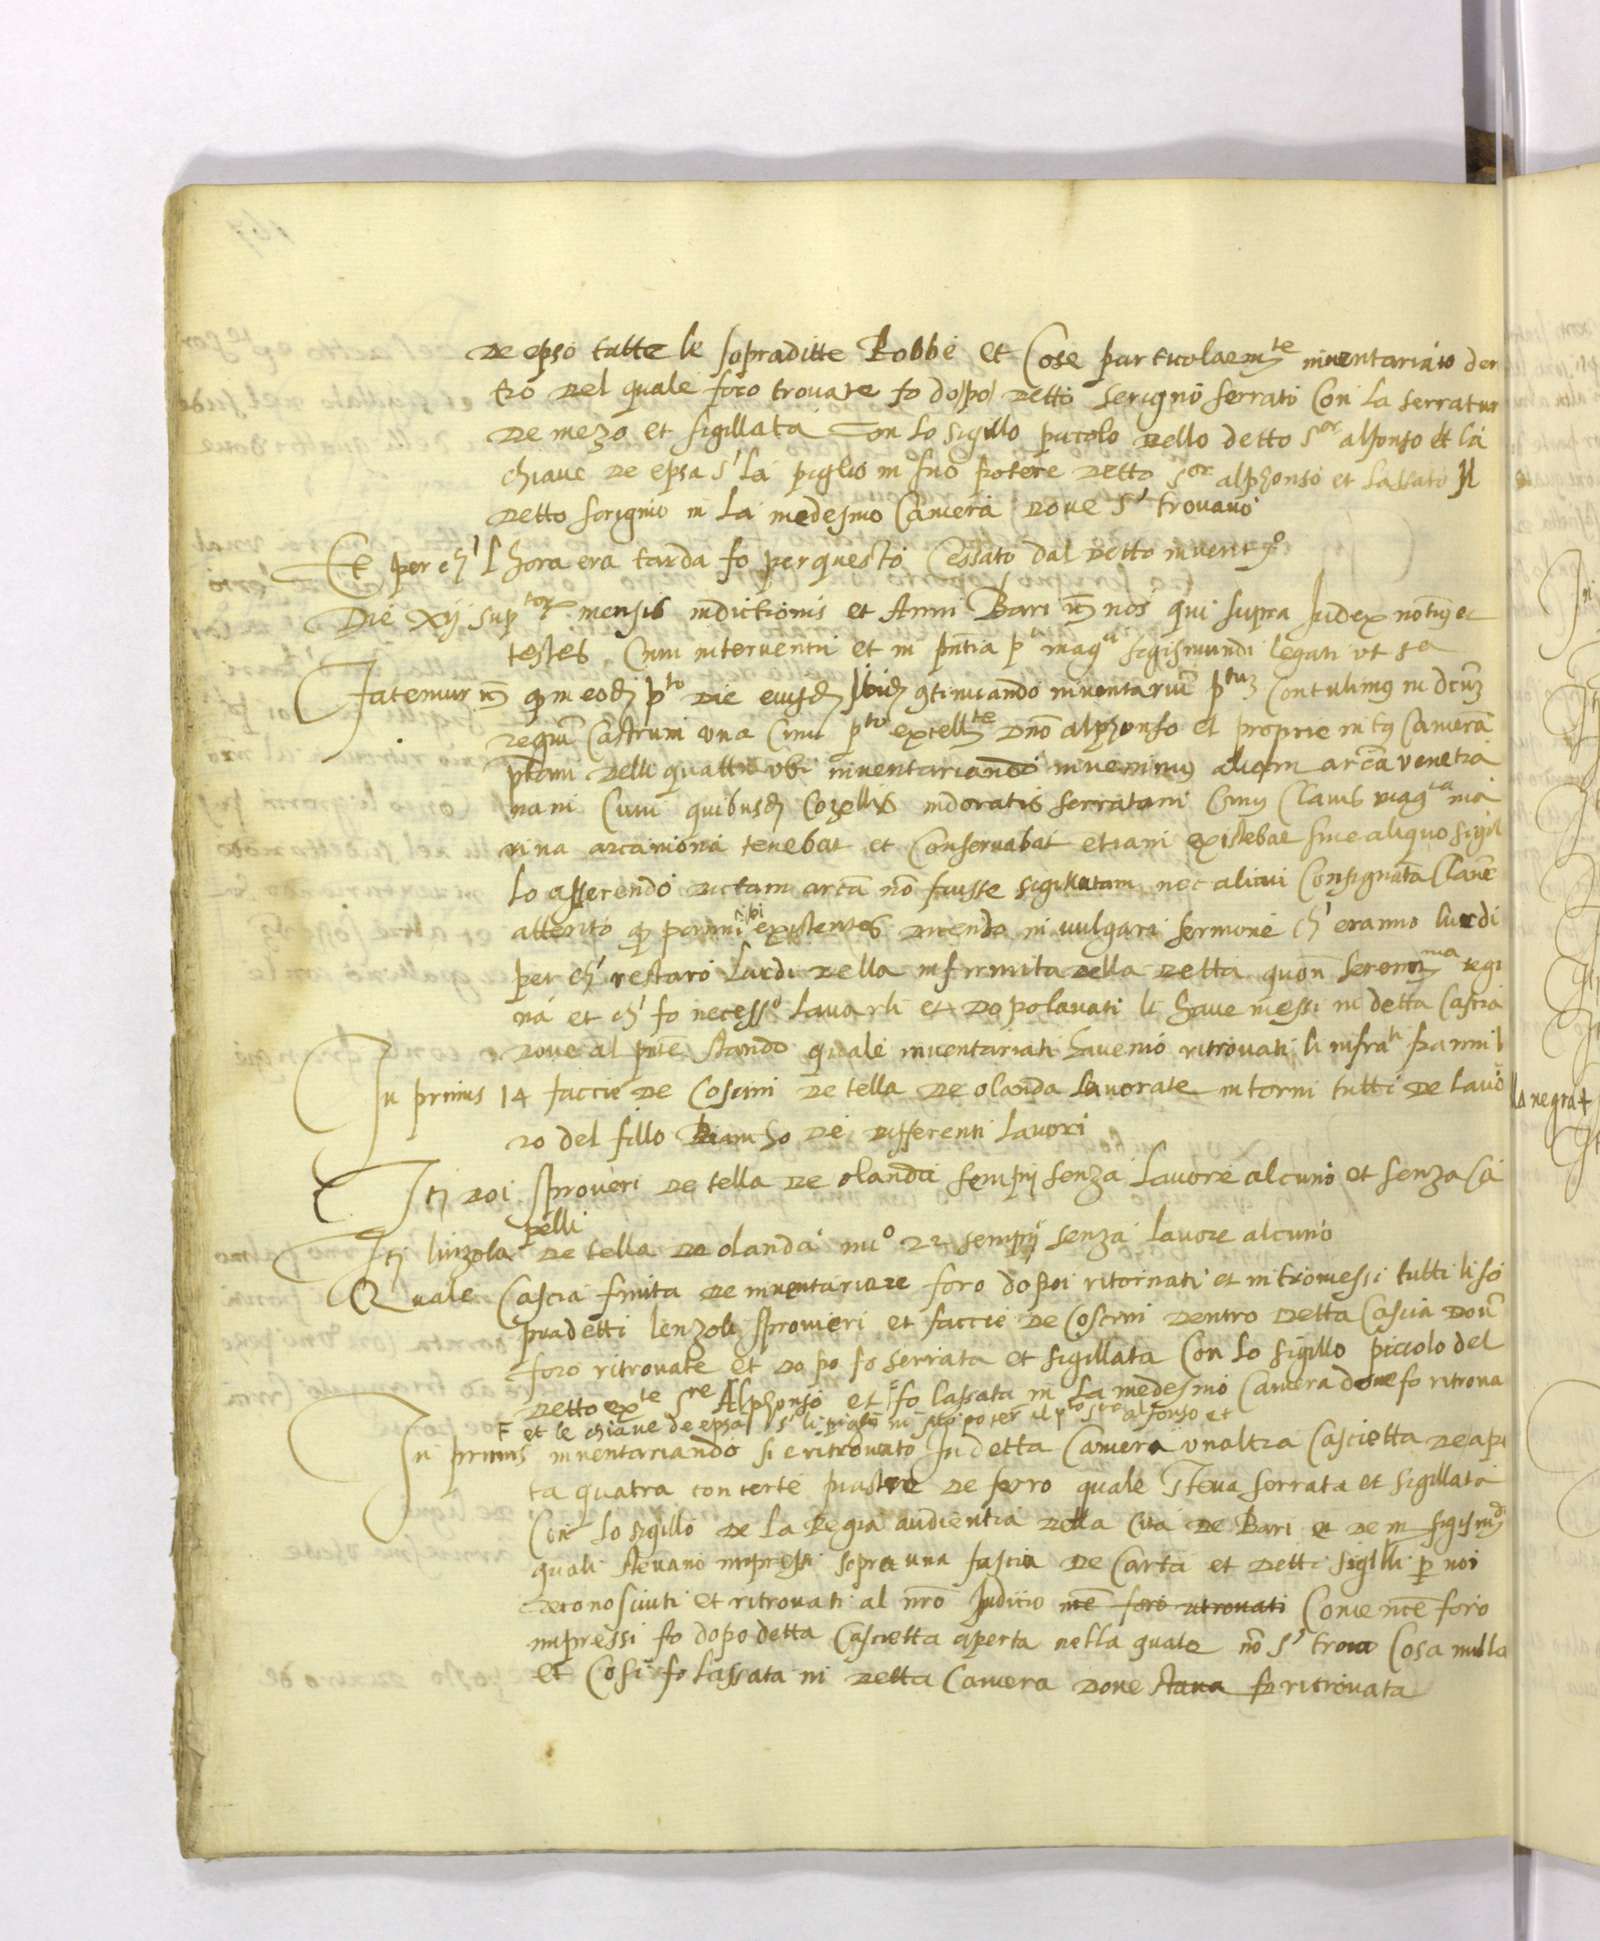 De epso tutte le sopraditte Robbe et Cose particolaem.te inventariaro den
tro del quale foro trovate fo dopoi detto serigno serrato Con la serratur
De mezo et sigillata Con lo sigillo picolo dello detto S.or alfonso et la
chiave de epsa s' la piglio in suo potere detto S.or alphonso et lassato Il
Detto serignio in la medesmo Camera dove s' trovavo
Et per ch' l hora era tarda fo per questo Cessato dal detto invent.o
Die xij sup.tor mensis indictionis et Anni Bari nos qui supra Judex not.us et
testes Cum interventu et in pntia p.ti mag.ci sigismundi legati ut s.a
Fatemur q in eod p.to Die eiusd ibid continuando inventariu p.tum Contulimus in dcum
regiu Castrum una Cum p.to excell.te Dno alphonso et proprie intus Camera
ptam delli quattro ubi inventariando invenimus aliam arca venetia
nam Cum quibusd Cozellis indoratis serratam Cuius Clavis mag.ca ma
rina arcamona tenebat et Conservabat etiam existebat sine aliquo sigil
lo asserendo dictam arca no fuisse sigillatam nec alicui Consignata Clave
attento q panni ibi existentes dicendo in vulgari sermone ch' eranno lurdi
per ch' restaro lurdi della infirmita della detta quon Seren.ma regi
na et ch' fo necess.o lavarli et dopo lavati li have messi in detta Cascia
dove al pnte stando quale inventariati havemo ritrovati li infra.tti panni
In primis 14 faccie de Coscini de tella de olanda lavorate intorni tutti de lavo
ro del fillo biancho de differenti lavori
It doi sproveri de tella de olanda sempij senza lavore alcuno et senza Ca
pelli
It linzola de tella de olanda nu.o 22 sempij senza lavore alcuno
Quale Cascia finita de inventariare foro dopoi ritornati et intromessi tutti li so
pradetti lenzoli sprovieri et faccie de Coscini dentro detta Cascia dove
foro ritrovate et dopo fo serrata et sigillata Con lo sigillo picciolo del
Detto ex.te S.re Alphonso et fo lassata in la medesmo Camera dove fo ritrova
et le chiave de epsa s' li piglio in suo poter il p.to S.re alfonso et
In primis inventariando si e ritrovato In detta Camera un altra Cascietta de api
ta quatra con certe piastre de ferro quale steva serrata et sigillata
Con lo sigillo de la Regia audientia della Cita de Bari et de m sigism.di
quali stevano impressi sopra una fascia de Carta et detti sigilli p noi
reconosciuti et ritrovati al nro Judicio nce foro ritrovati Come nce foro
impressi fo dopo detta Cascietta aperta nella quale no s' trova Cosa nulla
et Cosi fo lassata in detta Camera dove stava fo ritrovata
la negra